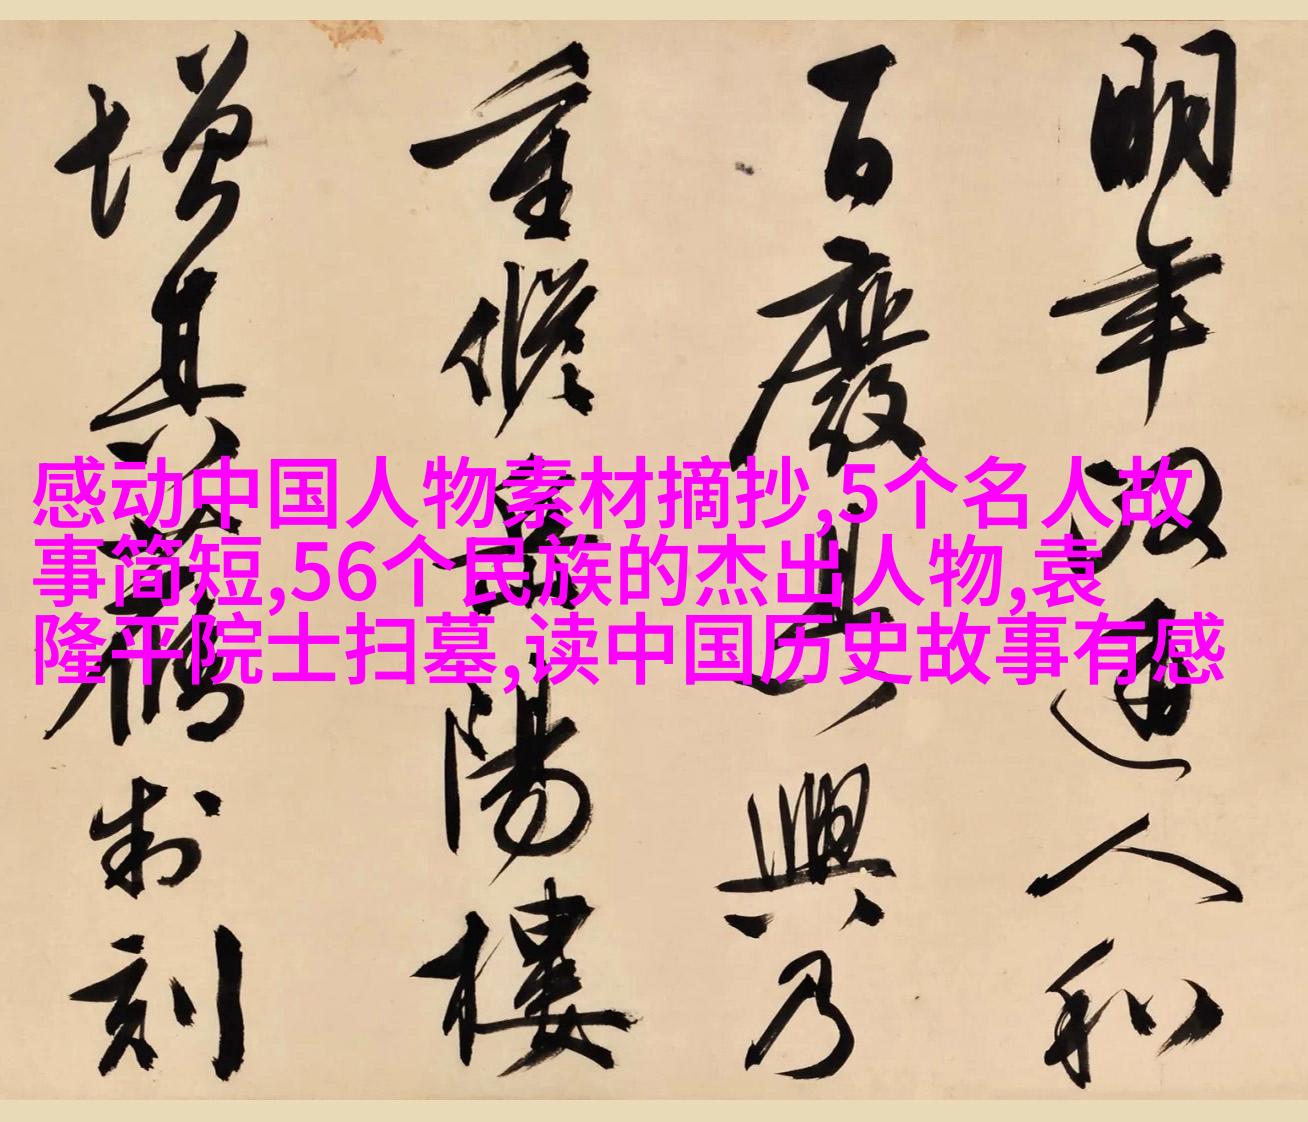 明年政通人和
百廢具興乃
重脩岳陽樓
增其舊制刻
感动中国人物素材摘抄,5个名人故
事简短,56个民族的杰出人物,袁
隆平院士扫墓,读中国历史故事有感